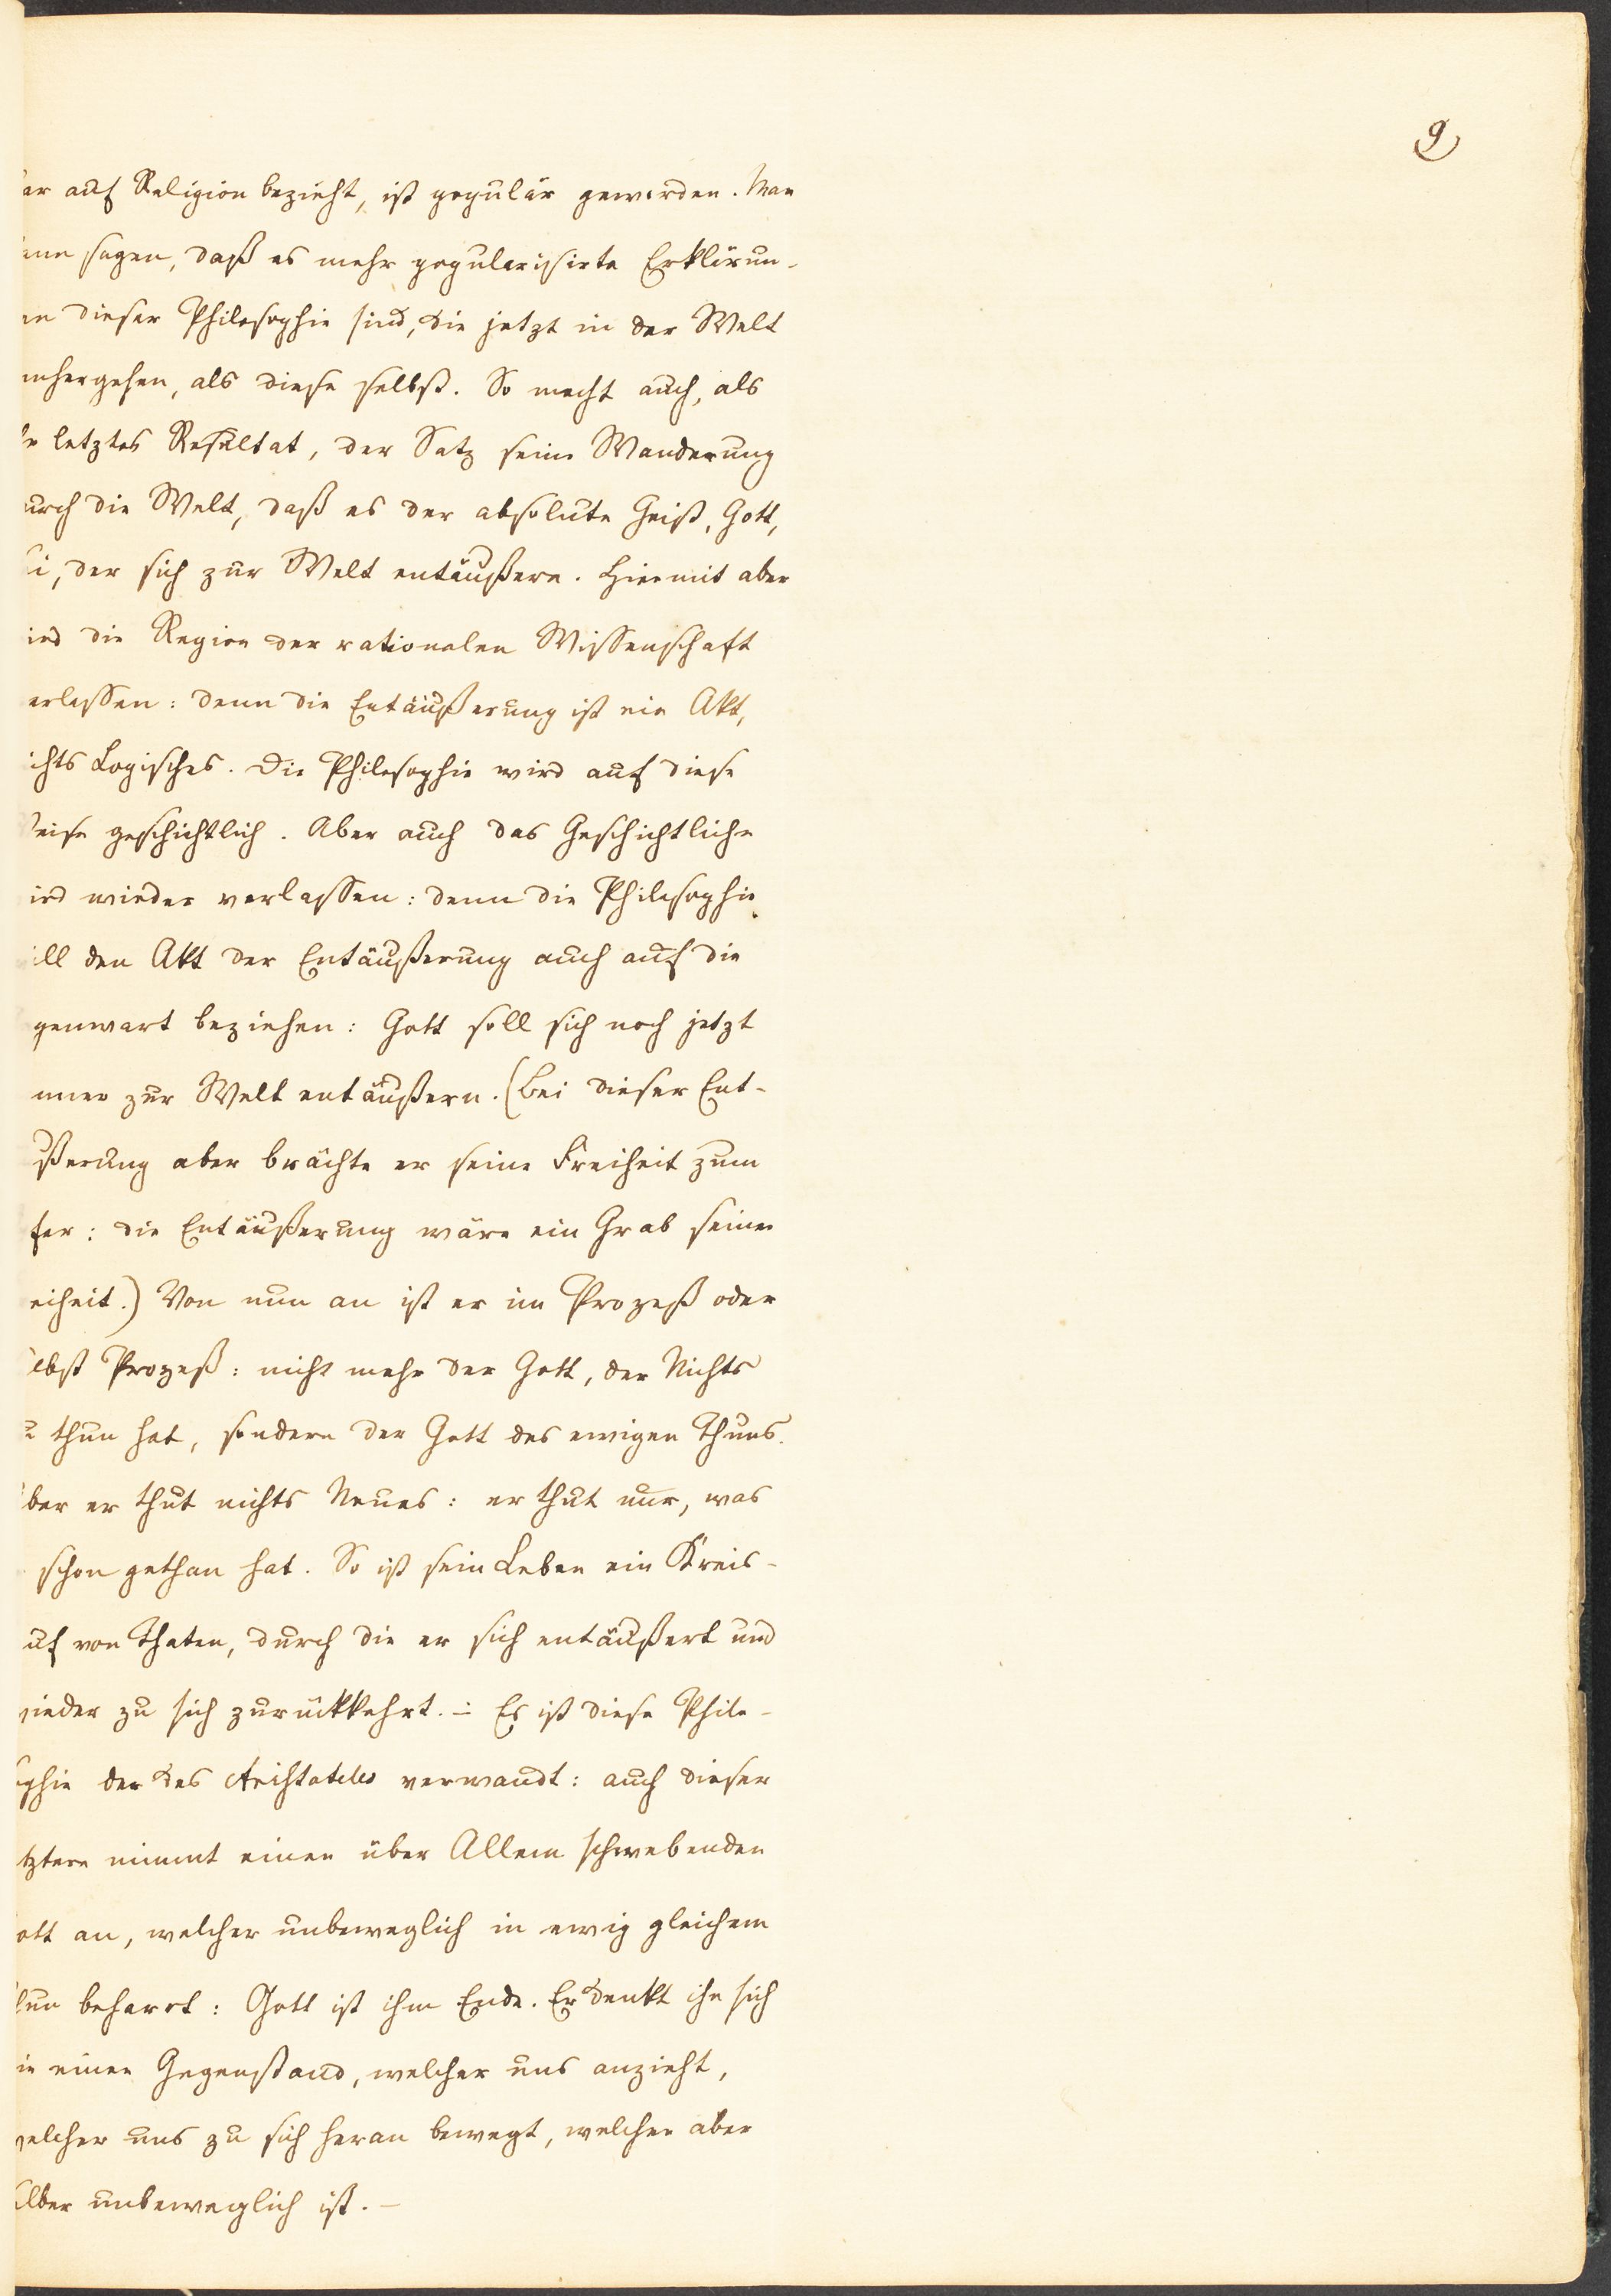 9
ar auf Religion bezieht, ist populär geworden. Man
ann sagen, daß es mehr popularisirte Erklärun-
en dieser Philosophie sind, die jetzt in der Welt
mhergehen, als diese selbst. So macht auch, als
letztes Resultat, der Satz seine Wanderung
urch die Welt, daß es der absolute Geist, Gott,
ei, der sich zur Welt entäußere. Hiermit aber
ird die Region der rationalen Wissenschaft
erlassen: denn die Entäußerung ist ein Akt,
ichts Logisches. Die Philosophie wird auf diese
eise geschichtlich. Aber auch das Geschichtliche
ird wieder verlassen: denn die Philosophie
ill den Akt der Entäußerung auch auf die
genwart beziehen: Gott soll sich noch jetzt
mer zur Welt entäußern. (Bei dieser Ent-
ßerung aber brächte er seine Freiheit zum
fer: die Entäußerung wäre ein Grab seiner
eiheit.) Von nun an ist er im Prozeß oder
elbst Prozeß: nicht mehr der Gott, der Nichts
u thun hat, sondern der Gott des ewigen Thuns.
ber er thut nichts Neues: er thut nur, was
schon gethan hat. So ist sein Leben ein Kreis-
uf von Thaten, durch die er sich entäußert und
wieder zu sich zurückkehrt. – Es ist diese Philo-
ophie der des Aristoteles verwandt: auch dieser
tztere nimmt einen über Allem schwebenden
ott an, welcher unbeweglich in ewig gleichem
hun beharrt: Gott ist ihm Ende. Er denkt ihn sich
ie einen Gegenstand, welcher uns anzieht,
welcher uns zu sich heran bewegt, welcher aber
elber unbeweglich ist. –